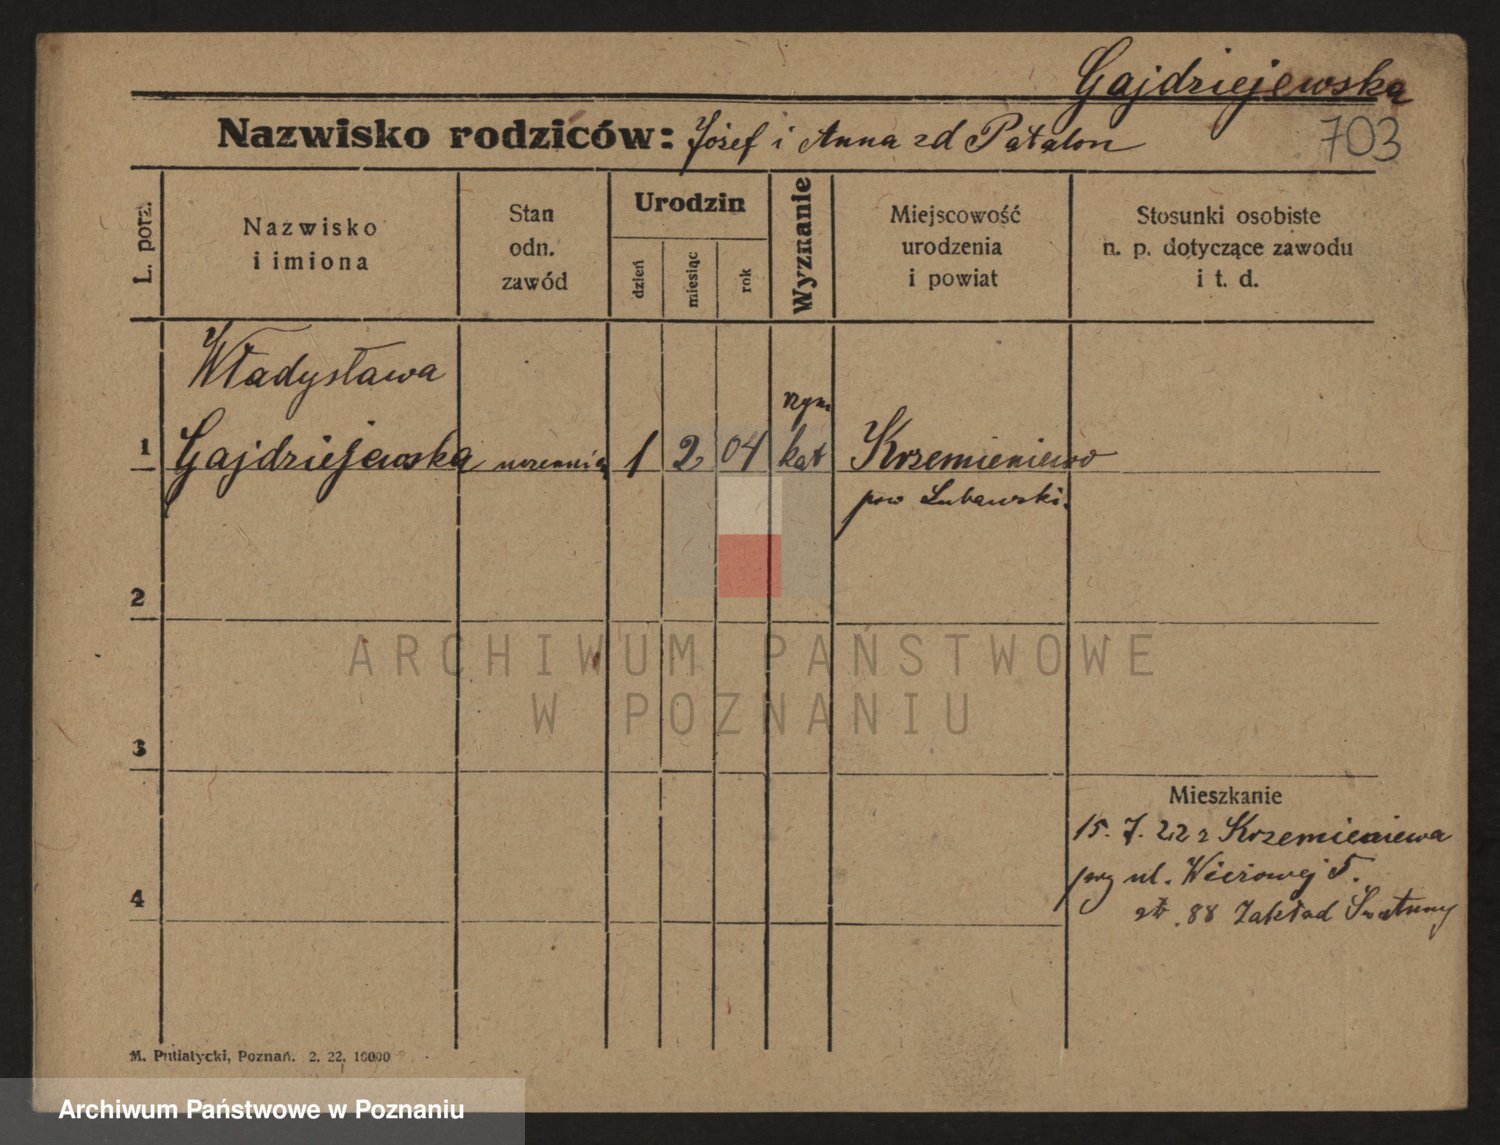 Gajdziejewska
Nazwisko rodziców: Józef i Anna zd Patalon
703
L. porz.
Nazwisko
i imiona
Stan
odn.
zawód
Urodzin
dzień
miesiąc
rok
Wyznanie
Miejscowość
urodzenia
i powiat
Stosunki osobiste
n. p. dotyczące zawodu
i t. d.
Władysława
1 Gajdziejewska uczennica 1 2 04 rzym kat Krzemieniewo
pow Lubawski.
2
ARCHIWUM PAŃSTWOWE
W POZNANIU
3
Mieszkanie
15. 7. 22 z Krzemieniewa
przy ul. 5.
4
88 Zakład
M. Putiatycki, Poznań. 2. 22. 10000
Archiwum Państwowe w Poznaniu